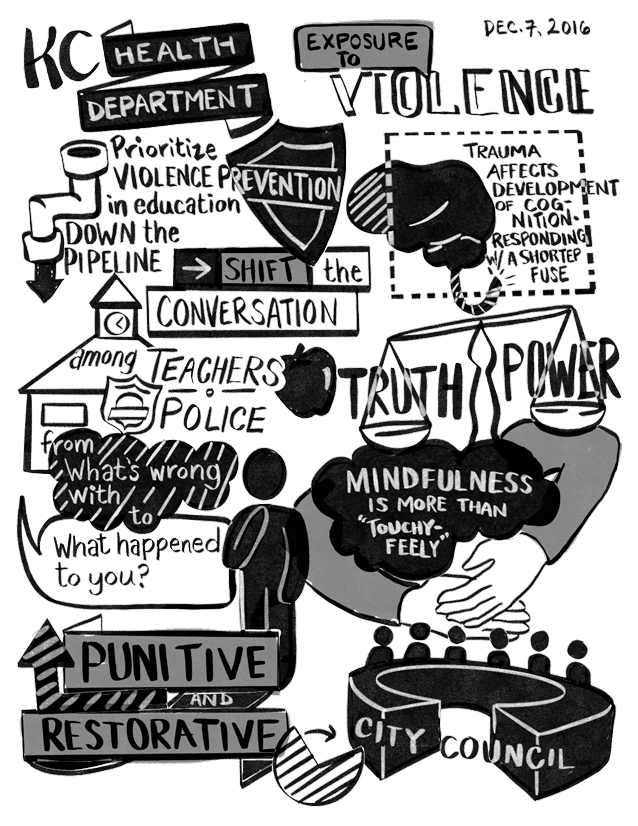 KC HEALTH
DEPARTMENT
EXPOSURE
TO
VIOLENCE
DEC. 7, 2016
Prioritize
VIOLENCE PREVENTION
in education
DOWN the
PIPELINE
→ SHIFT the
CONVERSATION
among TEACHERS
POLICE
from
What's wrong
with
to
What happened
to you?
PUNITIVE
AND
RESTORATIVE
TRAUMA
AFFECTS
DEVELOPMENT
OF COG-
NITION.
RESPONDING
W/ A SHORTER
FUSE
TRUTH POWER
MINDFULNESS
IS MORE THAN
"TOUCHY-
FEELY"
CITY COUNCIL